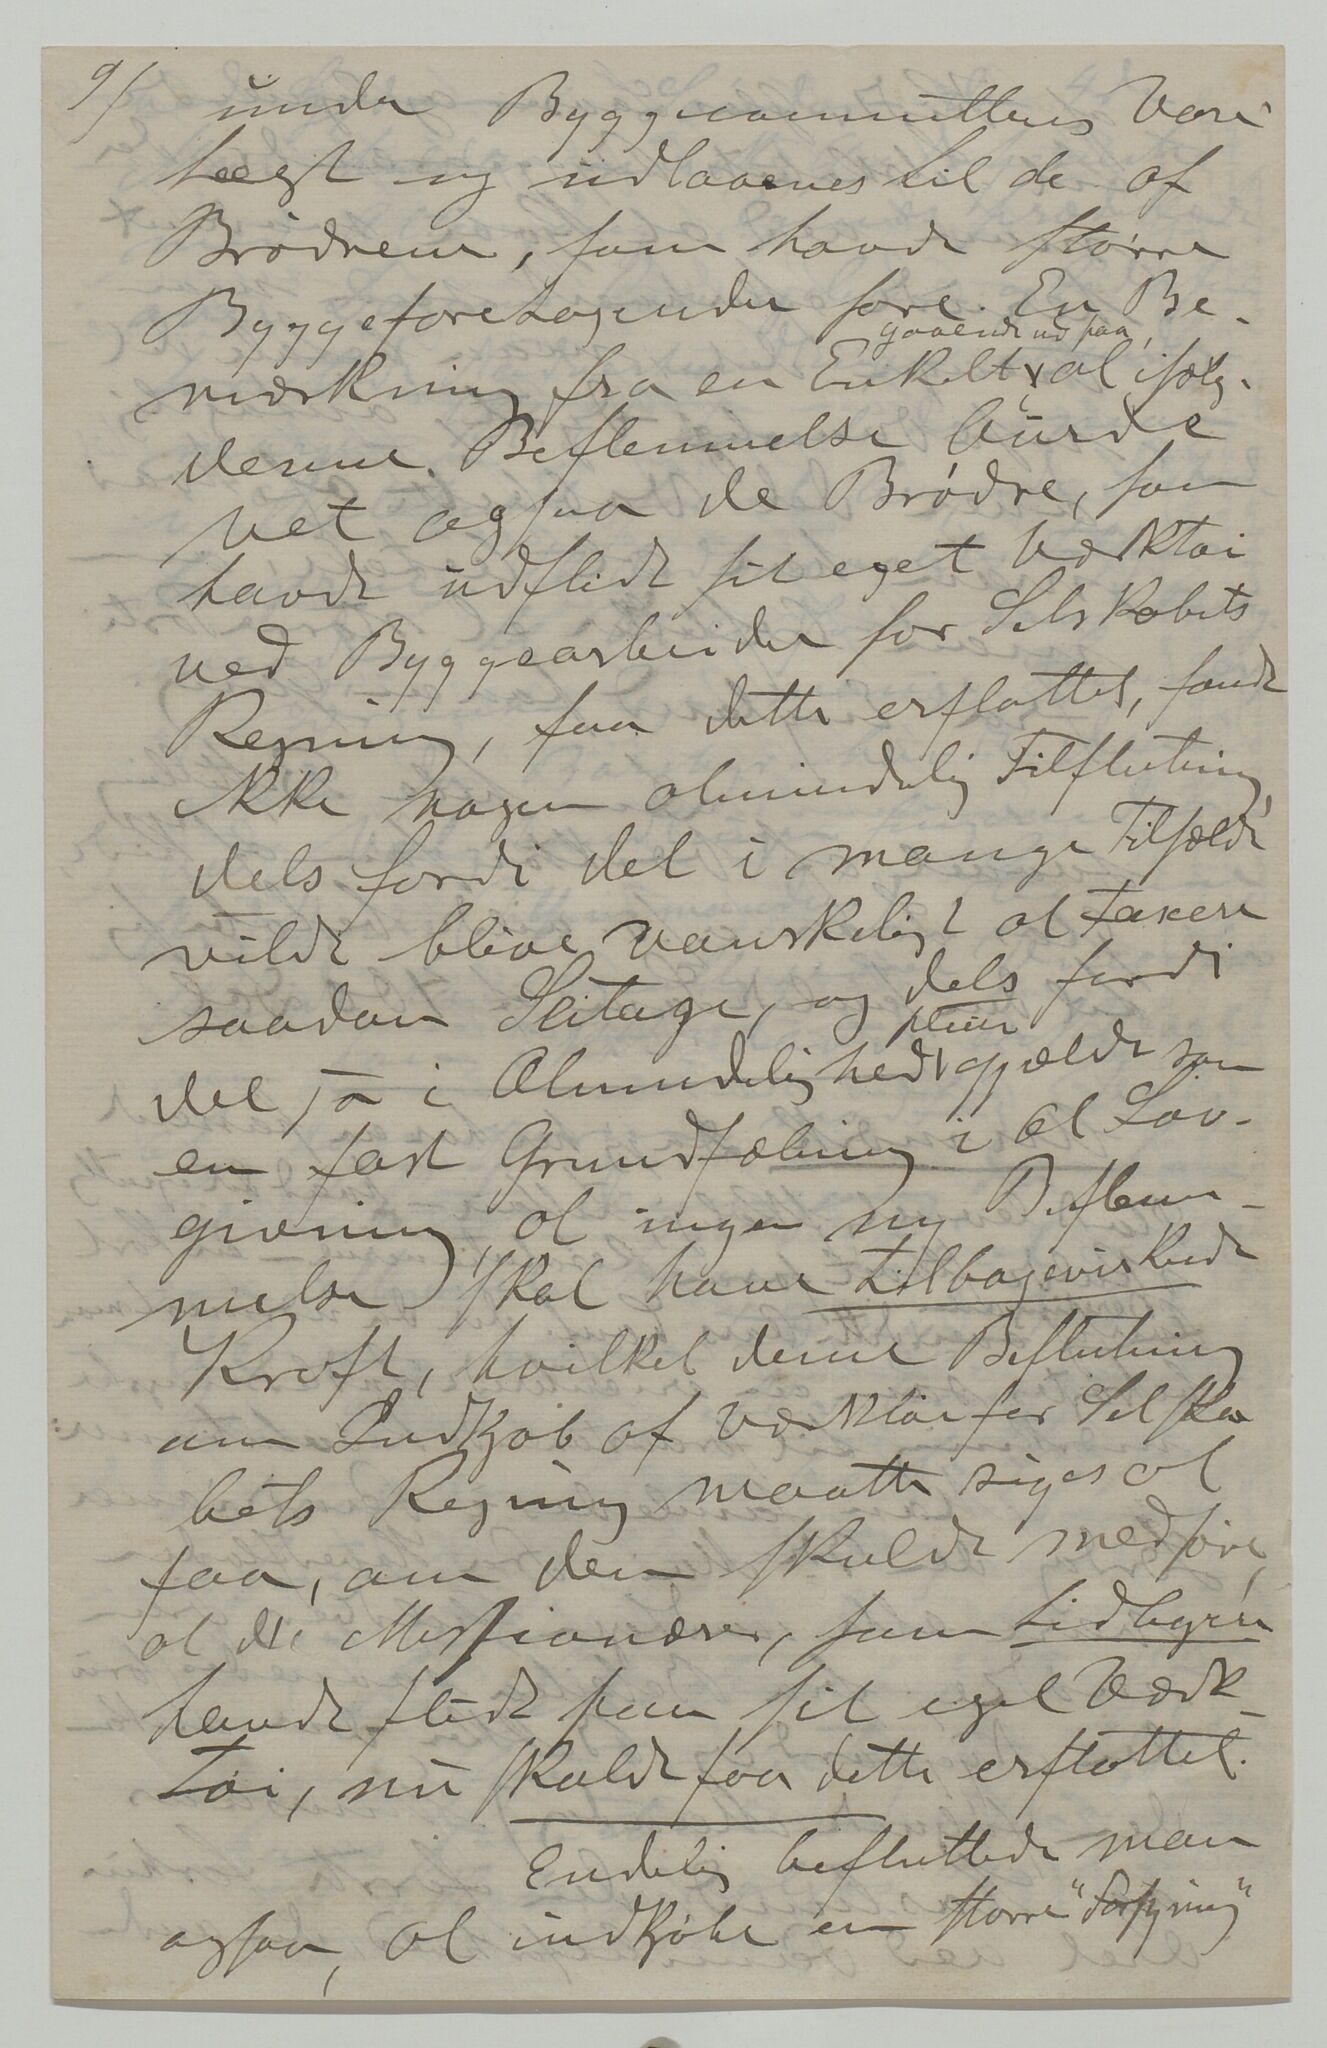 9/ under Byggecommitteens Vare
tægt og udlaanes til de af
Brødrene, som havde større
Byggeforetagender fore. En Be-
mærkning fra en Enkelt, gaaende ud paa, at ifølg.
denne Bestemmelse burde
vet ogsaa de Brødre, som
havde udslidt sit eget Værktøi
ved Byggearbeider for Selskabets
Regning, faa dette erstattet, fandt
ikke nogen almindelig Tilslutning,
dels fordi det i mange Tilfælde
vilde blive vanskeligt at taxere
saadan Slitage, og dels fordi
det jo i Almindelighed gjælder som
en fast Grundsætning i al Lov-
givning, at ingen ny Bestem-
melse skal have tilbagevirkende
Kraft, hvilket denne Beslutning
om Indkjøb af Værktøi for Selska
bets Regning maatte siges at
faa, om den skulde medføre,
at de Missionærer, som tidligere
havde slidt paa sit eget Værk-
tøi, nu skulde faa dette erstattet.
Endelig besluttede man
ogsaa, at indkjøbe en større "Forsyning"